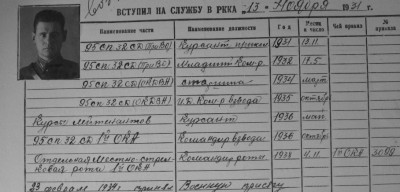 ВСТУПИЛ НА СЛУЖБУ В РККА "13" Ноября 1931 г.
Наименование части Наименование должности Год Месяц и число Чей приказ № приказа
95 СП. 32 СД (ПриВО) Курсант 1931 13.11
95 СП. 32 СД (ПриВО) Младший Ком-р 1932 18.5
95 СП. 32 СД (ОКДВА) старшина 1934 март
95 СП. 32 СД (ОКДВА) И.Д. Ком-р взвода 1935 октябр
Курсы Лейтенантов Курсант 1936
95 СП. 32 СД 1й ОКА Командир взвода 1936 октябр
Отдельная местно-стрел-
ковая рота 1й ОКА Командир роты 1938 4.11 1й ОКА
23 февраля 1939 г. принял Военную присягу